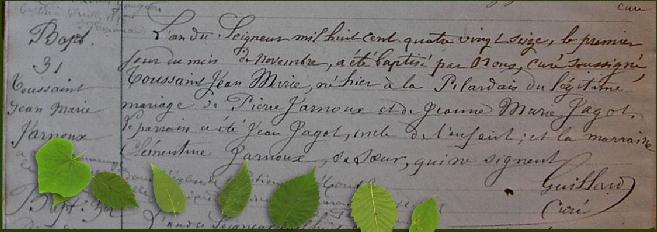 curé
Bapt.
31
Toussaint
Jean Marie
Jarnoux
L'an du Seigneur mil huit cent quatre vingt seize, le premier
jour du mois de Novembre, a été baptisé par Nous, curé soussigné,
Toussaint Jean Marie, né hier à la Pilardais du légitime
mariage de Pierre Jarnoux et de Jeanne Marie Jagot.
Le parrain a été Jean Jagot, oncle de l'enfant; et la marraine
Clémentine Jarnoux, sa sœur, qui ne signent
Guillard
Curé
Bapt. 32
L'an du Seigneur